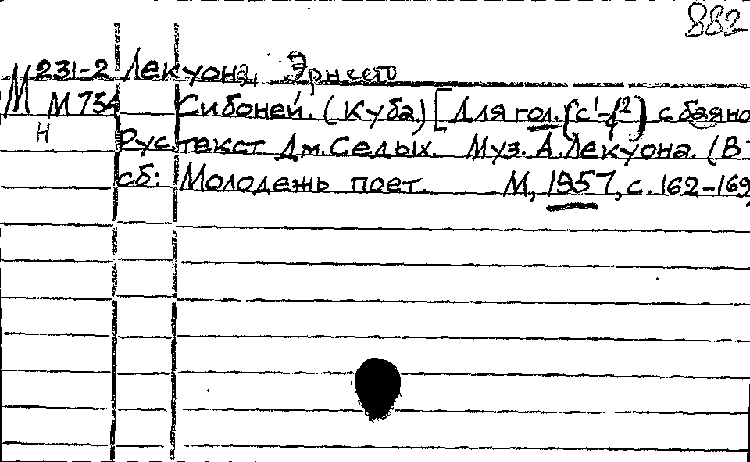 882
М 231-2 Лекуона, Эрнесто
М 734 Сибоней. (Куба) [Для гол. (c¹-f²) с баяно
Н Рус. текст Дм. Седых. Муз. А. Лекуона. (В
сб: Молодежь поет. М, 1957, с. 162-169